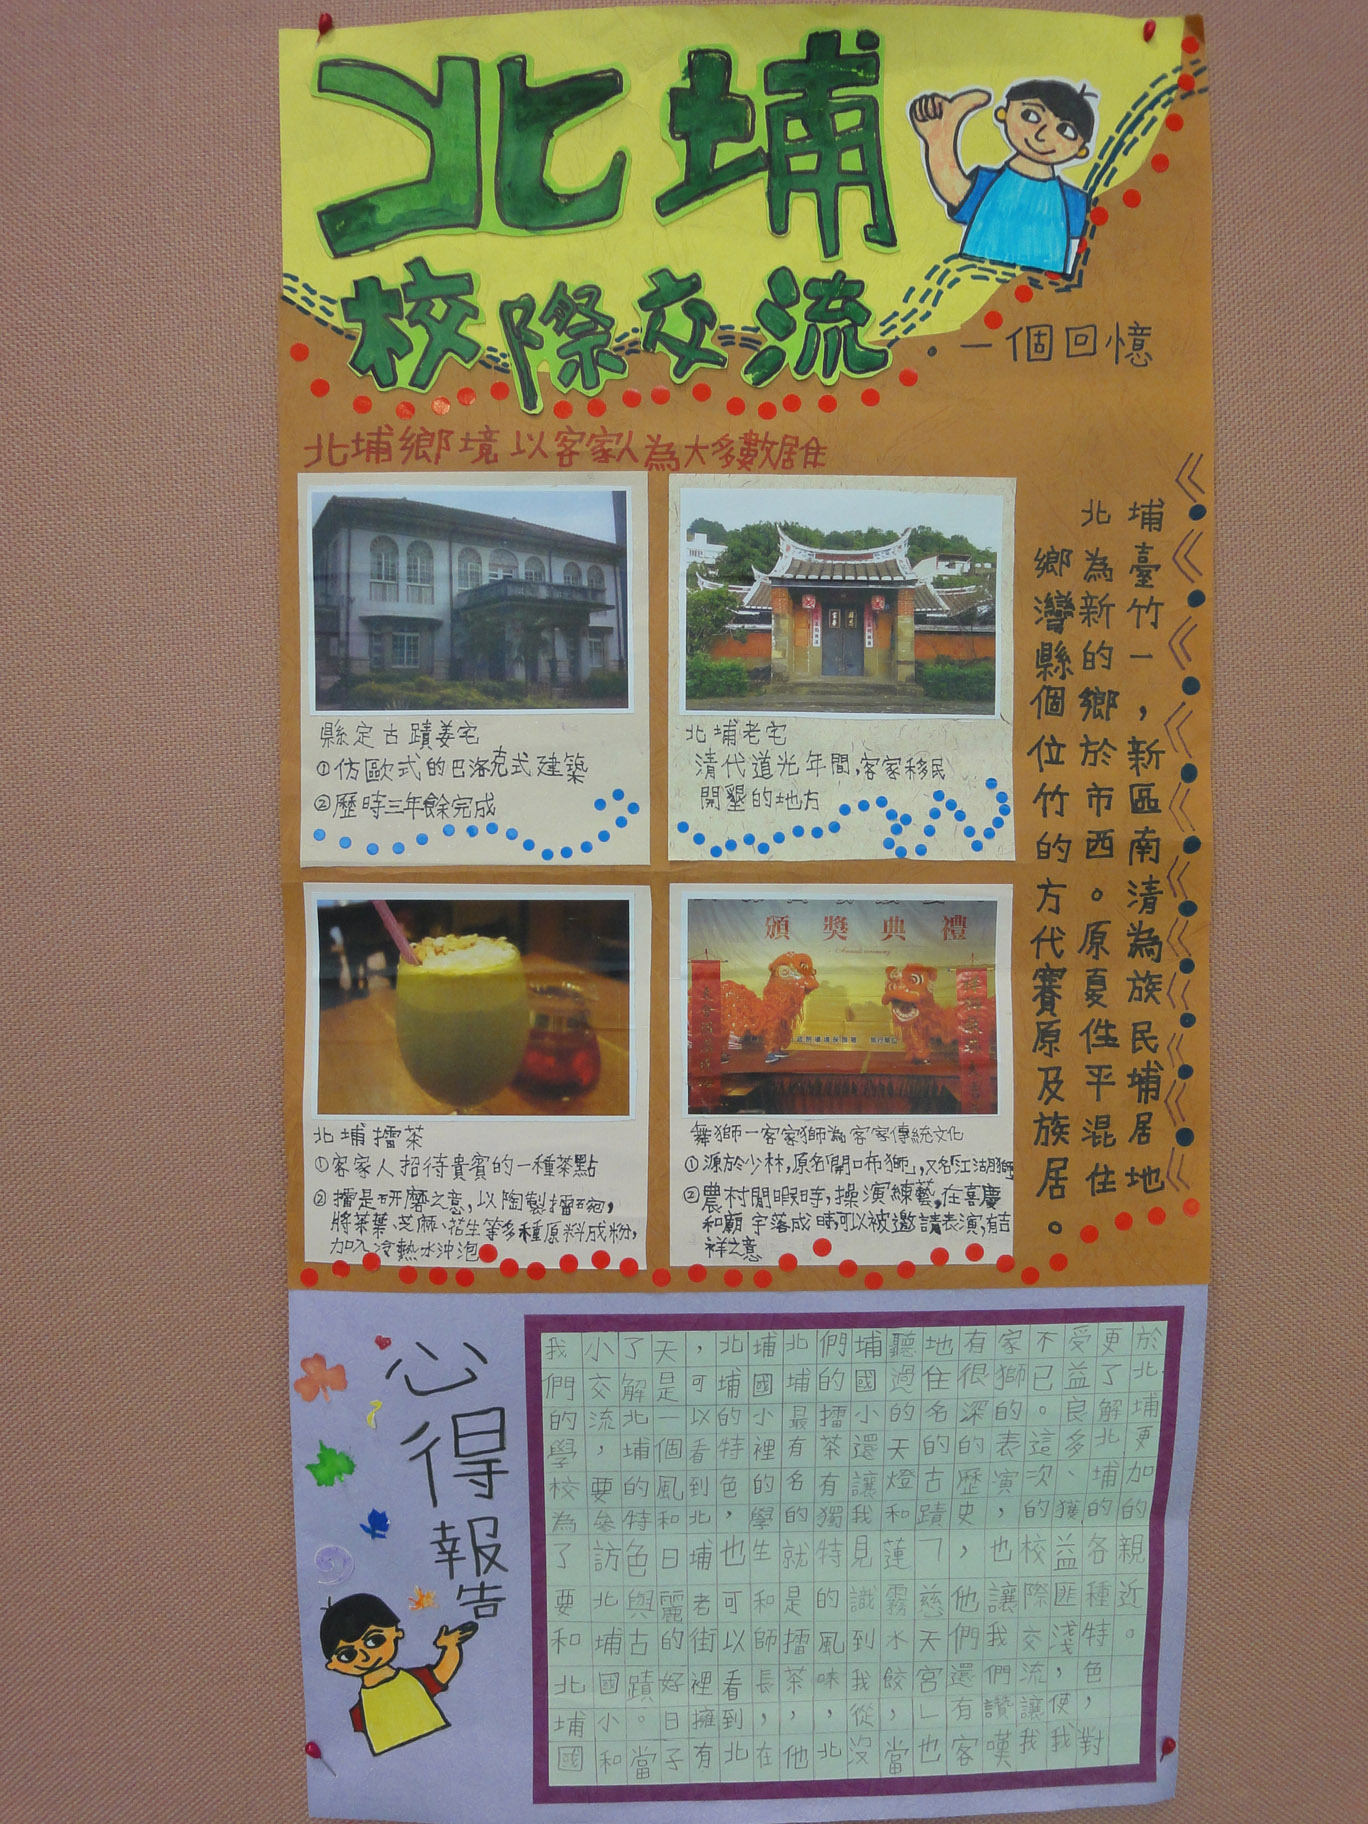 北埔
校際交流
·一個回憶
北埔鄉境以客家人為大多數居住
縣定古蹟姜宅
①仿歐式的巴洛克式建築
②歷時三年餘完成
北埔老宅
清代道光年間,客家移民
開墾的地方
北埔
鄉為臺
灣新竹
縣的一
個鄉，
位於新
竹市區
的西南
方。清
代原為
賽夏族
原性民
及平埔
族混居
居住地
。
北埔擂茶
①客家人招待貴賓的一種茶點
②擂是研磨之意,以陶製擂碗,
將茶葉、芝麻、花生等多種原料成粉,
加入冷熱水沖泡
頒獎典禮
舞獅一客家獅為客家傳統文化
①源於少林,原名「開口布獅」,又名「江湖獅
②農村閒暇時,操演練藝,在喜慶
和廟宇落成時,可以被邀請表演,有吉
祥之意
心得報告
我們的學校為了要和北埔國
小交流，要參訪北埔國小和
了解北埔的特色與古蹟。當
天是一個風和日麗的好日子
，可以看到北埔老街裡擁有
北埔的特色，也可以看到北
埔國小裡的學生和師長，在
北埔最有名的就是擂茶，他
們的擂茶有獨特的風味，北
埔國小還讓我見識到我從沒
聽過的天燈和蓮霧水餃，當
地住名的古蹟「慈天宮」也
有很深的歷史，他們還有客
家獅的表演，也讓我們讚嘆
不已。這次的校際交流讓我
受益良多、獲益匪淺，使我
更了解北埔的各種特色，對
於北埔更加的親近。